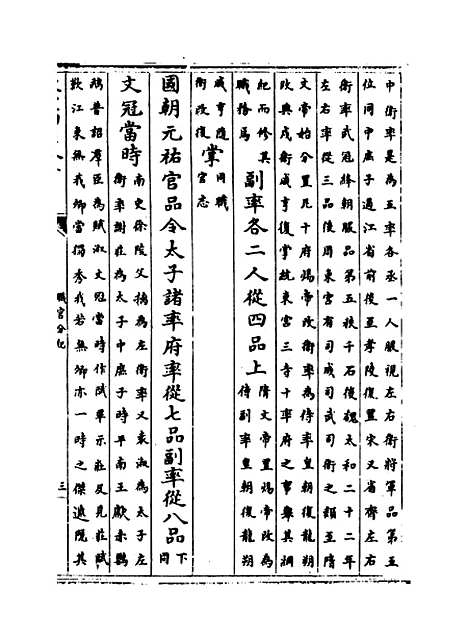 中衛率是為五率各丞一人服視左右衛將軍品第五
位同中庶子過江省前後至孝陵復置宋又省齊左右
衛率武冠絳朝服品第五秩千石後魏太和二十二年
左右率從三品後周東宮有司戎司武司衛之類至隋
文帝始分置凡十府煬帝改衛率為侍率皇朝復龍朔
改典戎衛咸亨復掌統東宮三寺十率府之事舉其綱
紀而修其
職務焉
副率各二人從四品上
隋文帝置煬帝改為
侍副率皇朝復龍朔
咸亨隨同職
衛改復
掌
官志
國朝元祐官品令太子諸率府率從七品副率從八品
下
同
文冠當時
南史徐陵父摛為左衛率又袁淑為太子左
衛率謝莊為太子中庶子時平南王獻赤鸚
鵡普詔羣臣為賦淑文冠當時作賦畢示莊及見莊賦
歎江東無我卿當獨秀我若無卿亦一時之傑遂隱其
職官分紀
三